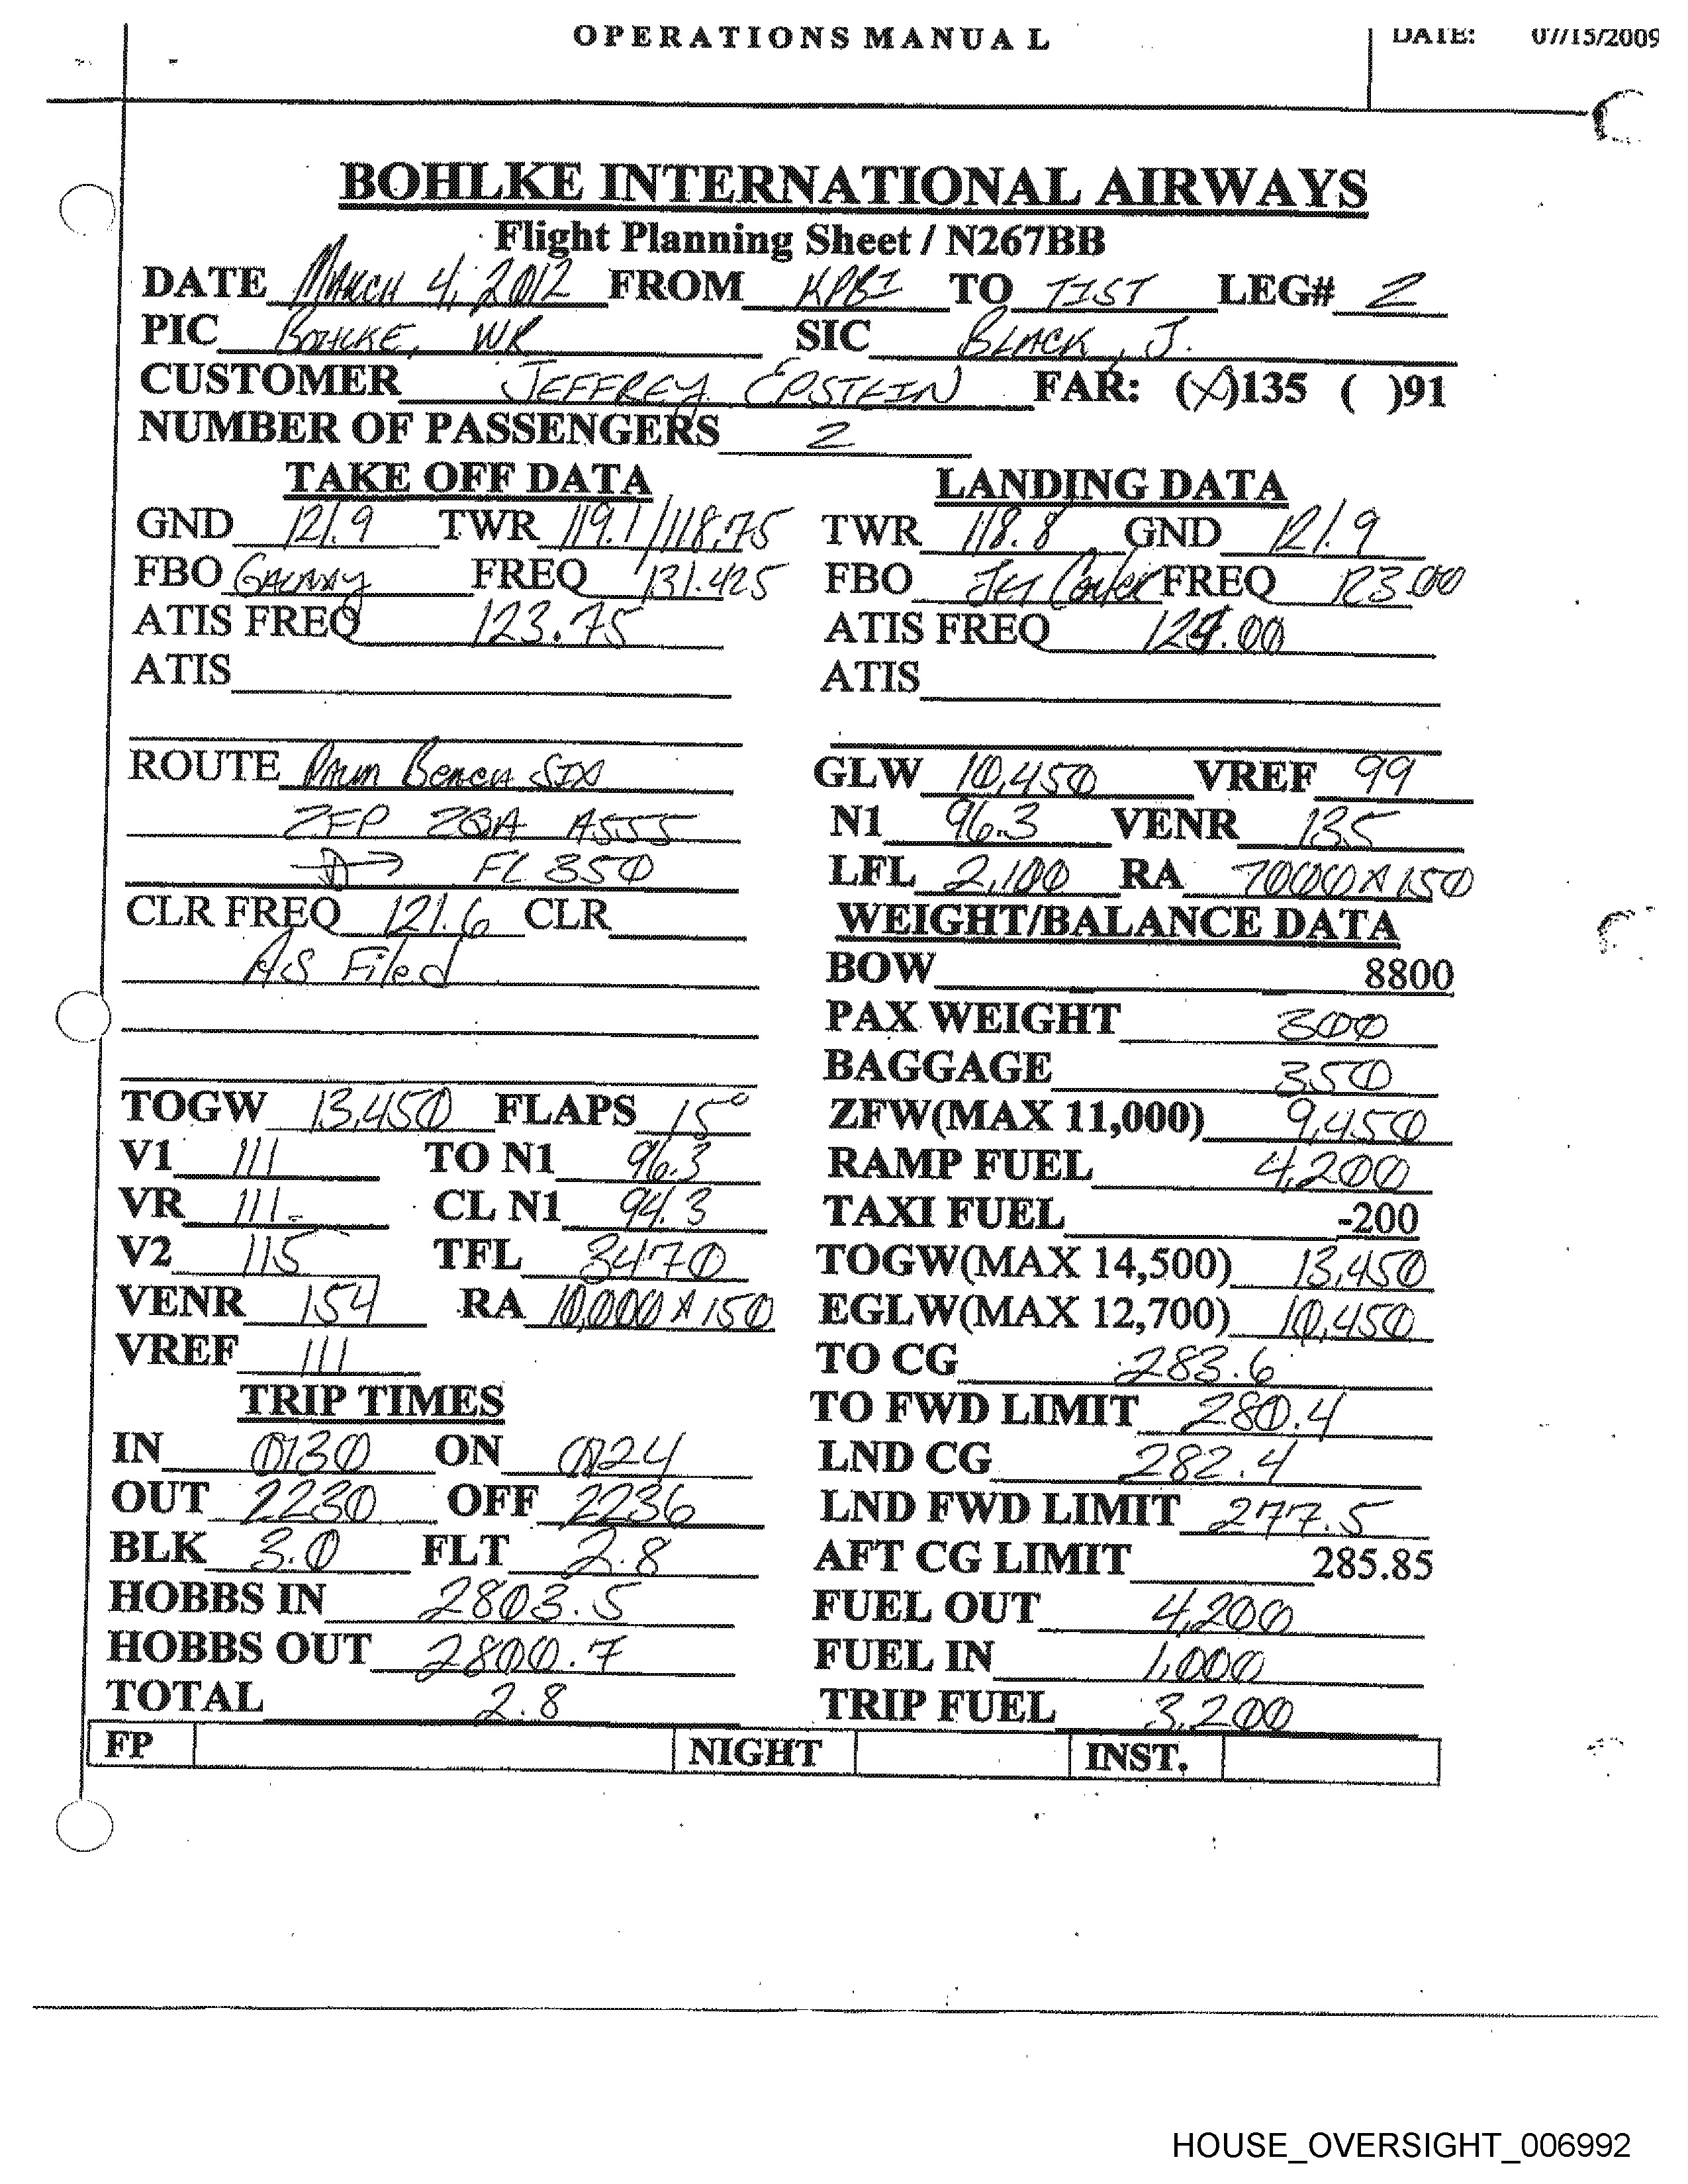 OPERATIONS MANUAL
DATE: 07/15/2009
BOHLKE INTERNATIONAL AIRWAYS
Flight Planning Sheet / N267BB
DATE March 4, 2012 FROM KPBI TO TIST LEG# 2
PIC BOHLKE, WR SIC BLACK, J.
CUSTOMER JEFFREY EPSTEIN FAR: (X)135 ( )91
NUMBER OF PASSENGERS 2
TAKE OFF DATA
GND 121.9 TWR 119.1/118.75
FBO GALAXY FREQ 131.425
ATIS FREQ 123.75
ATIS
ROUTE PALM BEACH SIX
ZFP ZQA A555
D→ FL 350
CLR FREQ 121.6 CLR
AS Filed
TOGW 13,450 FLAPS 15°
V1 111 TO N1 96.3
VR 111 CL N1 94.3
V2 115 TFL 3470
VENR 154 RA 10,000 A 150
VREF 111
TRIP TIMES
IN 0130 ON 0124
OUT 2230 OFF 2236
BLK 3.0 FLT 2.8
HOBBS IN 2803.5
HOBBS OUT 2800.7
TOTAL 2.8
LANDING DATA
TWR 118.8 GND 121.9
FBO Jet Center FREQ 123.00
ATIS FREQ 124.00
ATIS
GLW 10,450 VREF 99
N1 96.3 VENR 135
LFL 2,100 RA 7000 A 150
WEIGHT/BALANCE DATA
BOW 8800
PAX WEIGHT 300
BAGGAGE 350
ZFW(MAX 11,000) 9,450
RAMP FUEL 4,200
TAXI FUEL -200
TOGW(MAX 14,500) 13,450
EGLW(MAX 12,700) 10,450
TO CG 283.6
TO FWD LIMIT 280.4
LND CG 282.4
LND FWD LIMIT 277.5
AFT CG LIMIT 285.85
FUEL OUT 4,200
FUEL IN 1,000
TRIP FUEL 3,200
FP NIGHT INST.
HOUSE_OVERSIGHT_006992